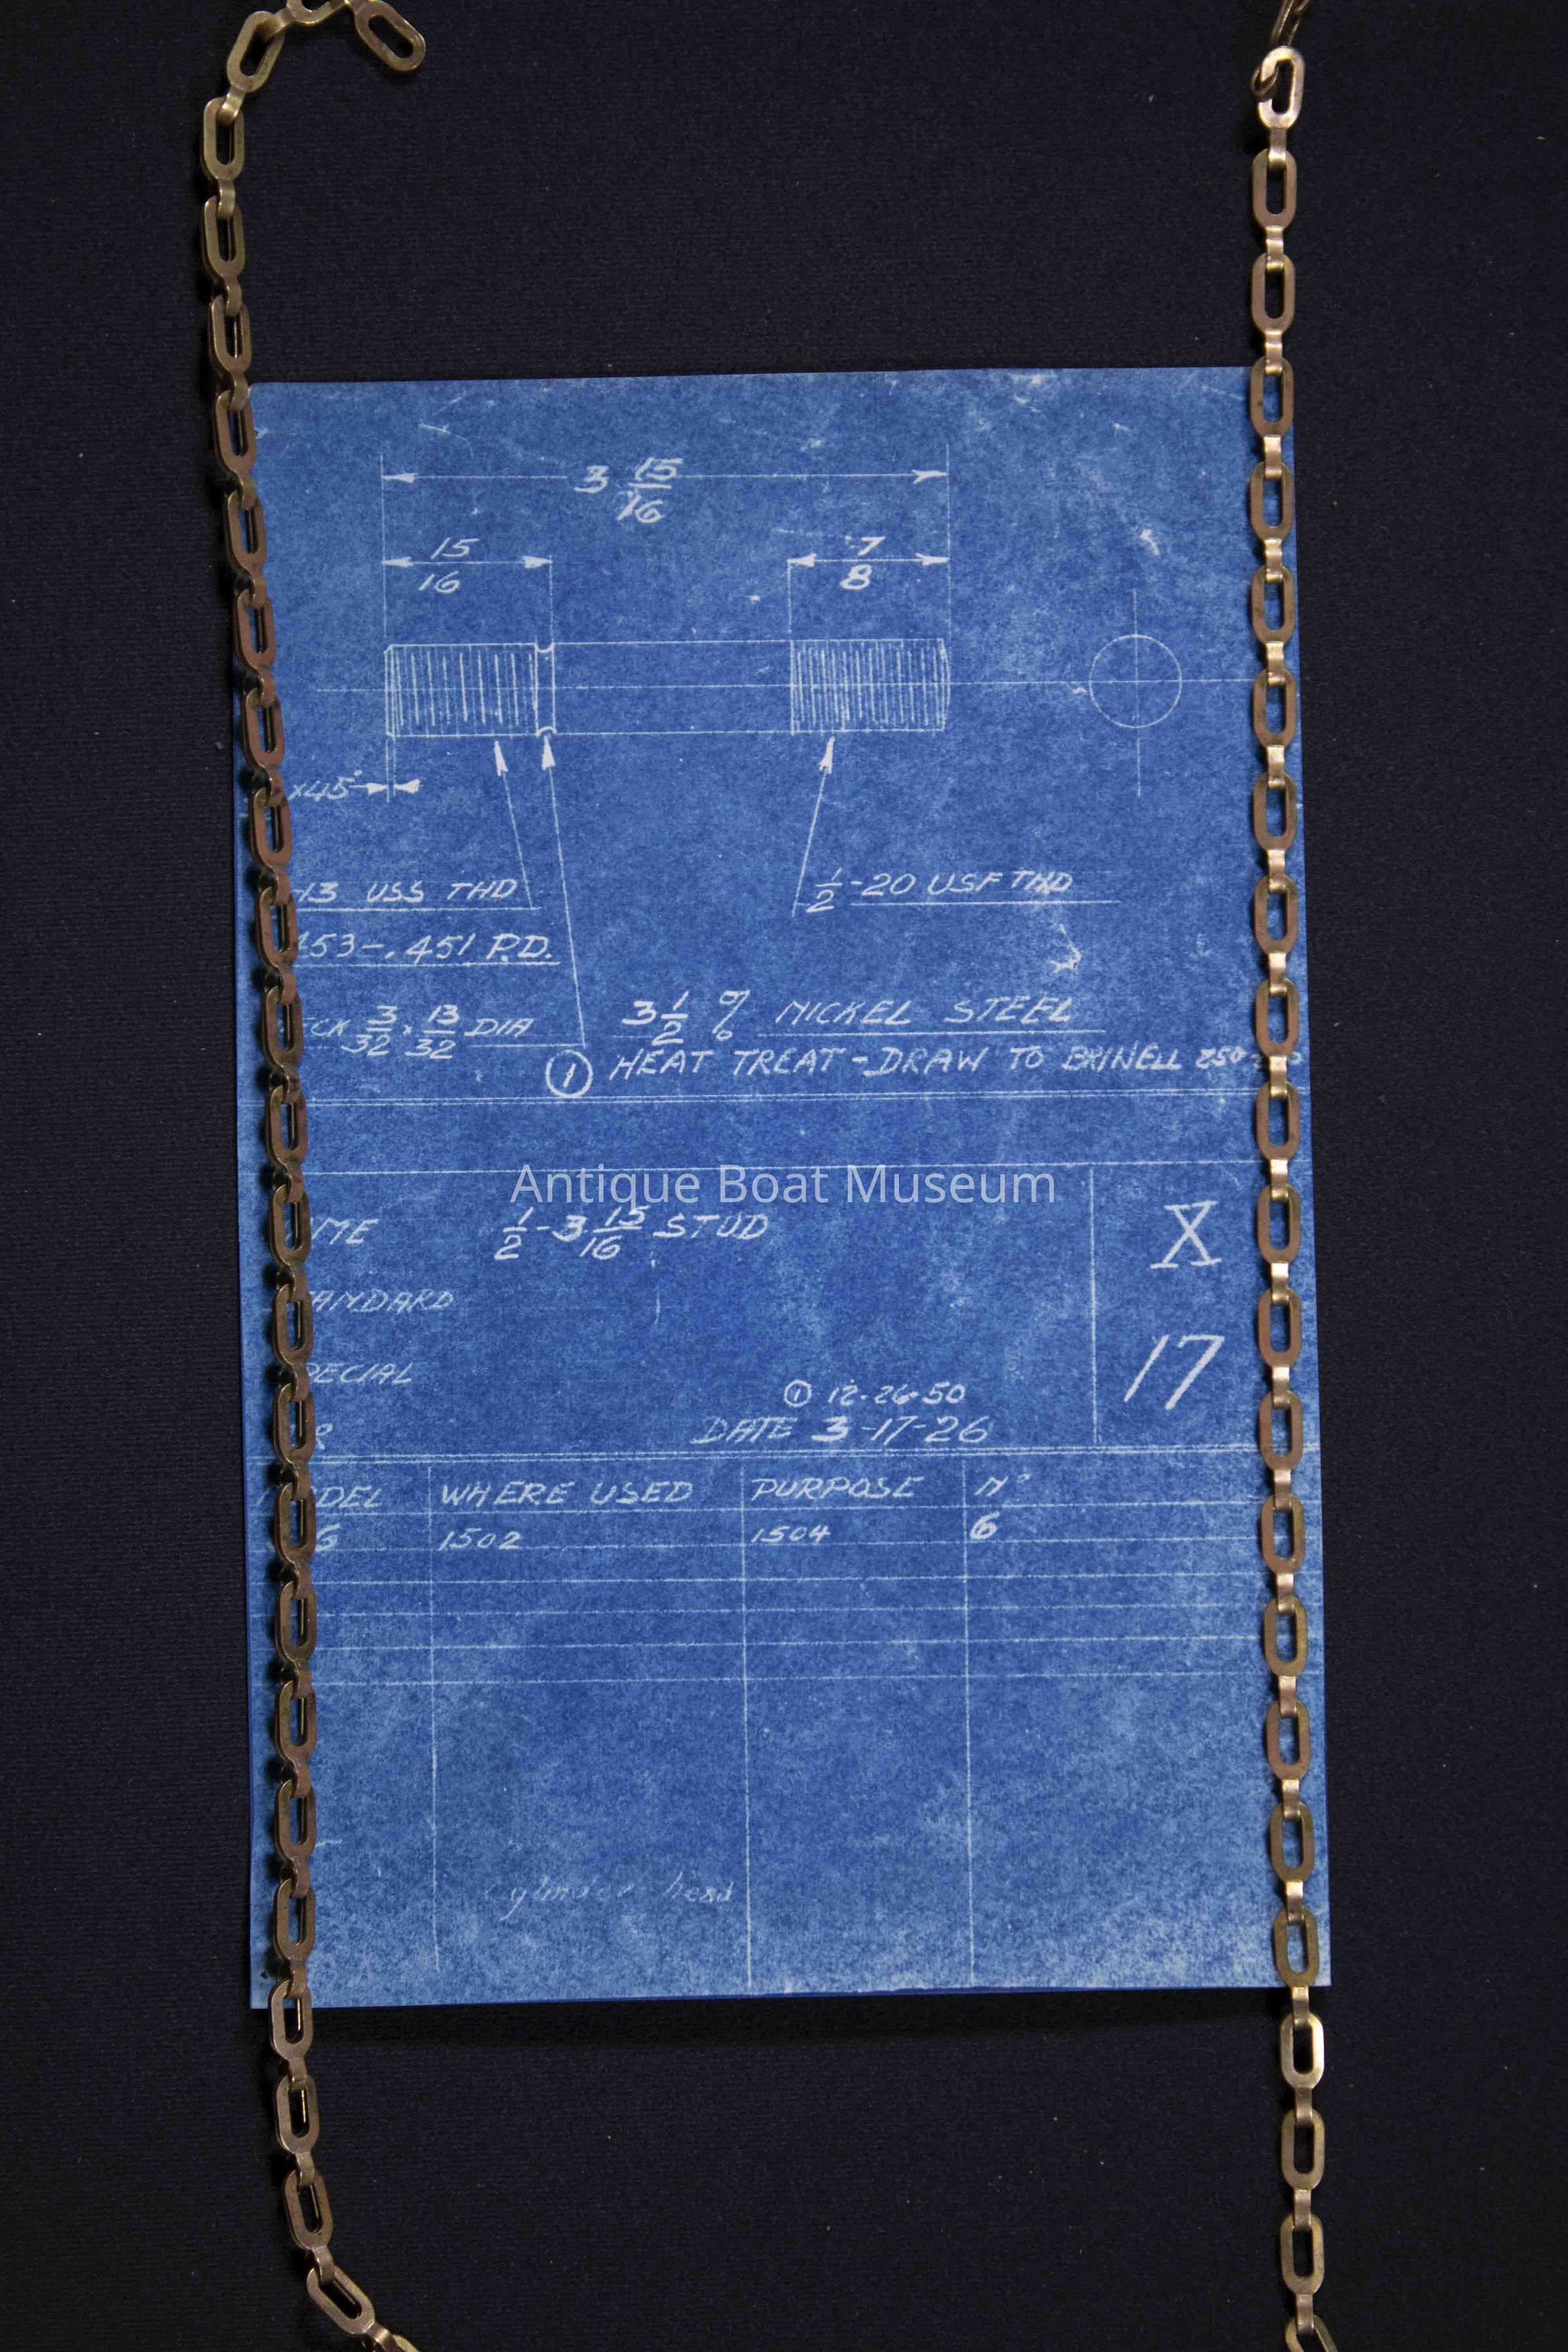 3 15/16
15/16 7/8
x45°
-13 USS THD
1/2-20 USF THD
.453-.451 P.D.
3/32 x 13/32 DIA
3 1/2 % NICKEL STEEL
① HEAT TREAT-DRAW TO BRINELL 250
Antique Boat Museum
ME 1/2-3 15/16 STUD
X
ANDARD
17
PECIAL
① 12-26-50
R DATE 3-17-26
ODEL WHERE USED PURPOSE Nº
1502 1504 6
cylinder head